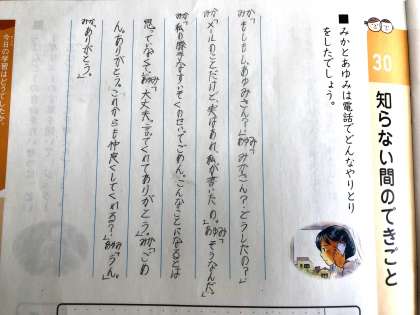 30
知らない間のできごと
■みかとあゆみは電話でどんなやりとり
をしたでしょう。
みか「もしもし、あゆみさん?」あゆみ「みかさん?どうしたの?」
みか「メールのことだけど、実はあれ、私が書いたの。」あゆみ「そうなんだ。」
みか「私の勝手なすいそくのせいでごめん。こんなことになるとは
思ってなくて。」あゆみ「大丈夫。言ってくれてありがとう。」みか「ごめ
ん。ありがとう。これからも仲良くしてくれる?」あゆみ「うん。」
みか「ありがとう。」
今日の学習はどうでしたか。